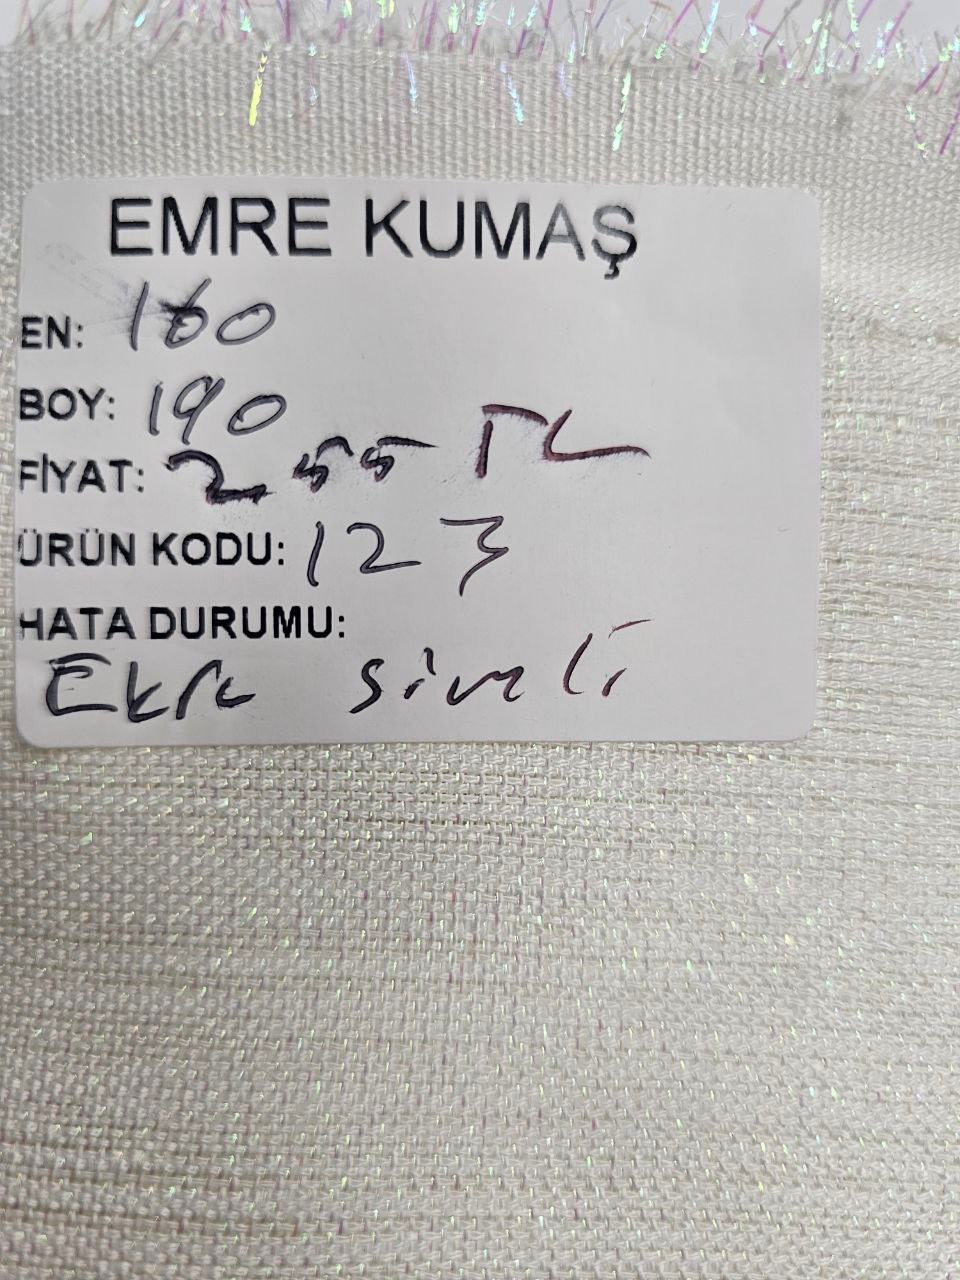 EMRE KUMAŞ
EN: 160
BOY: 190
FİYAT: 255 TL
ÜRÜN KODU: 123
HATA DURUMU:
Ekru simli